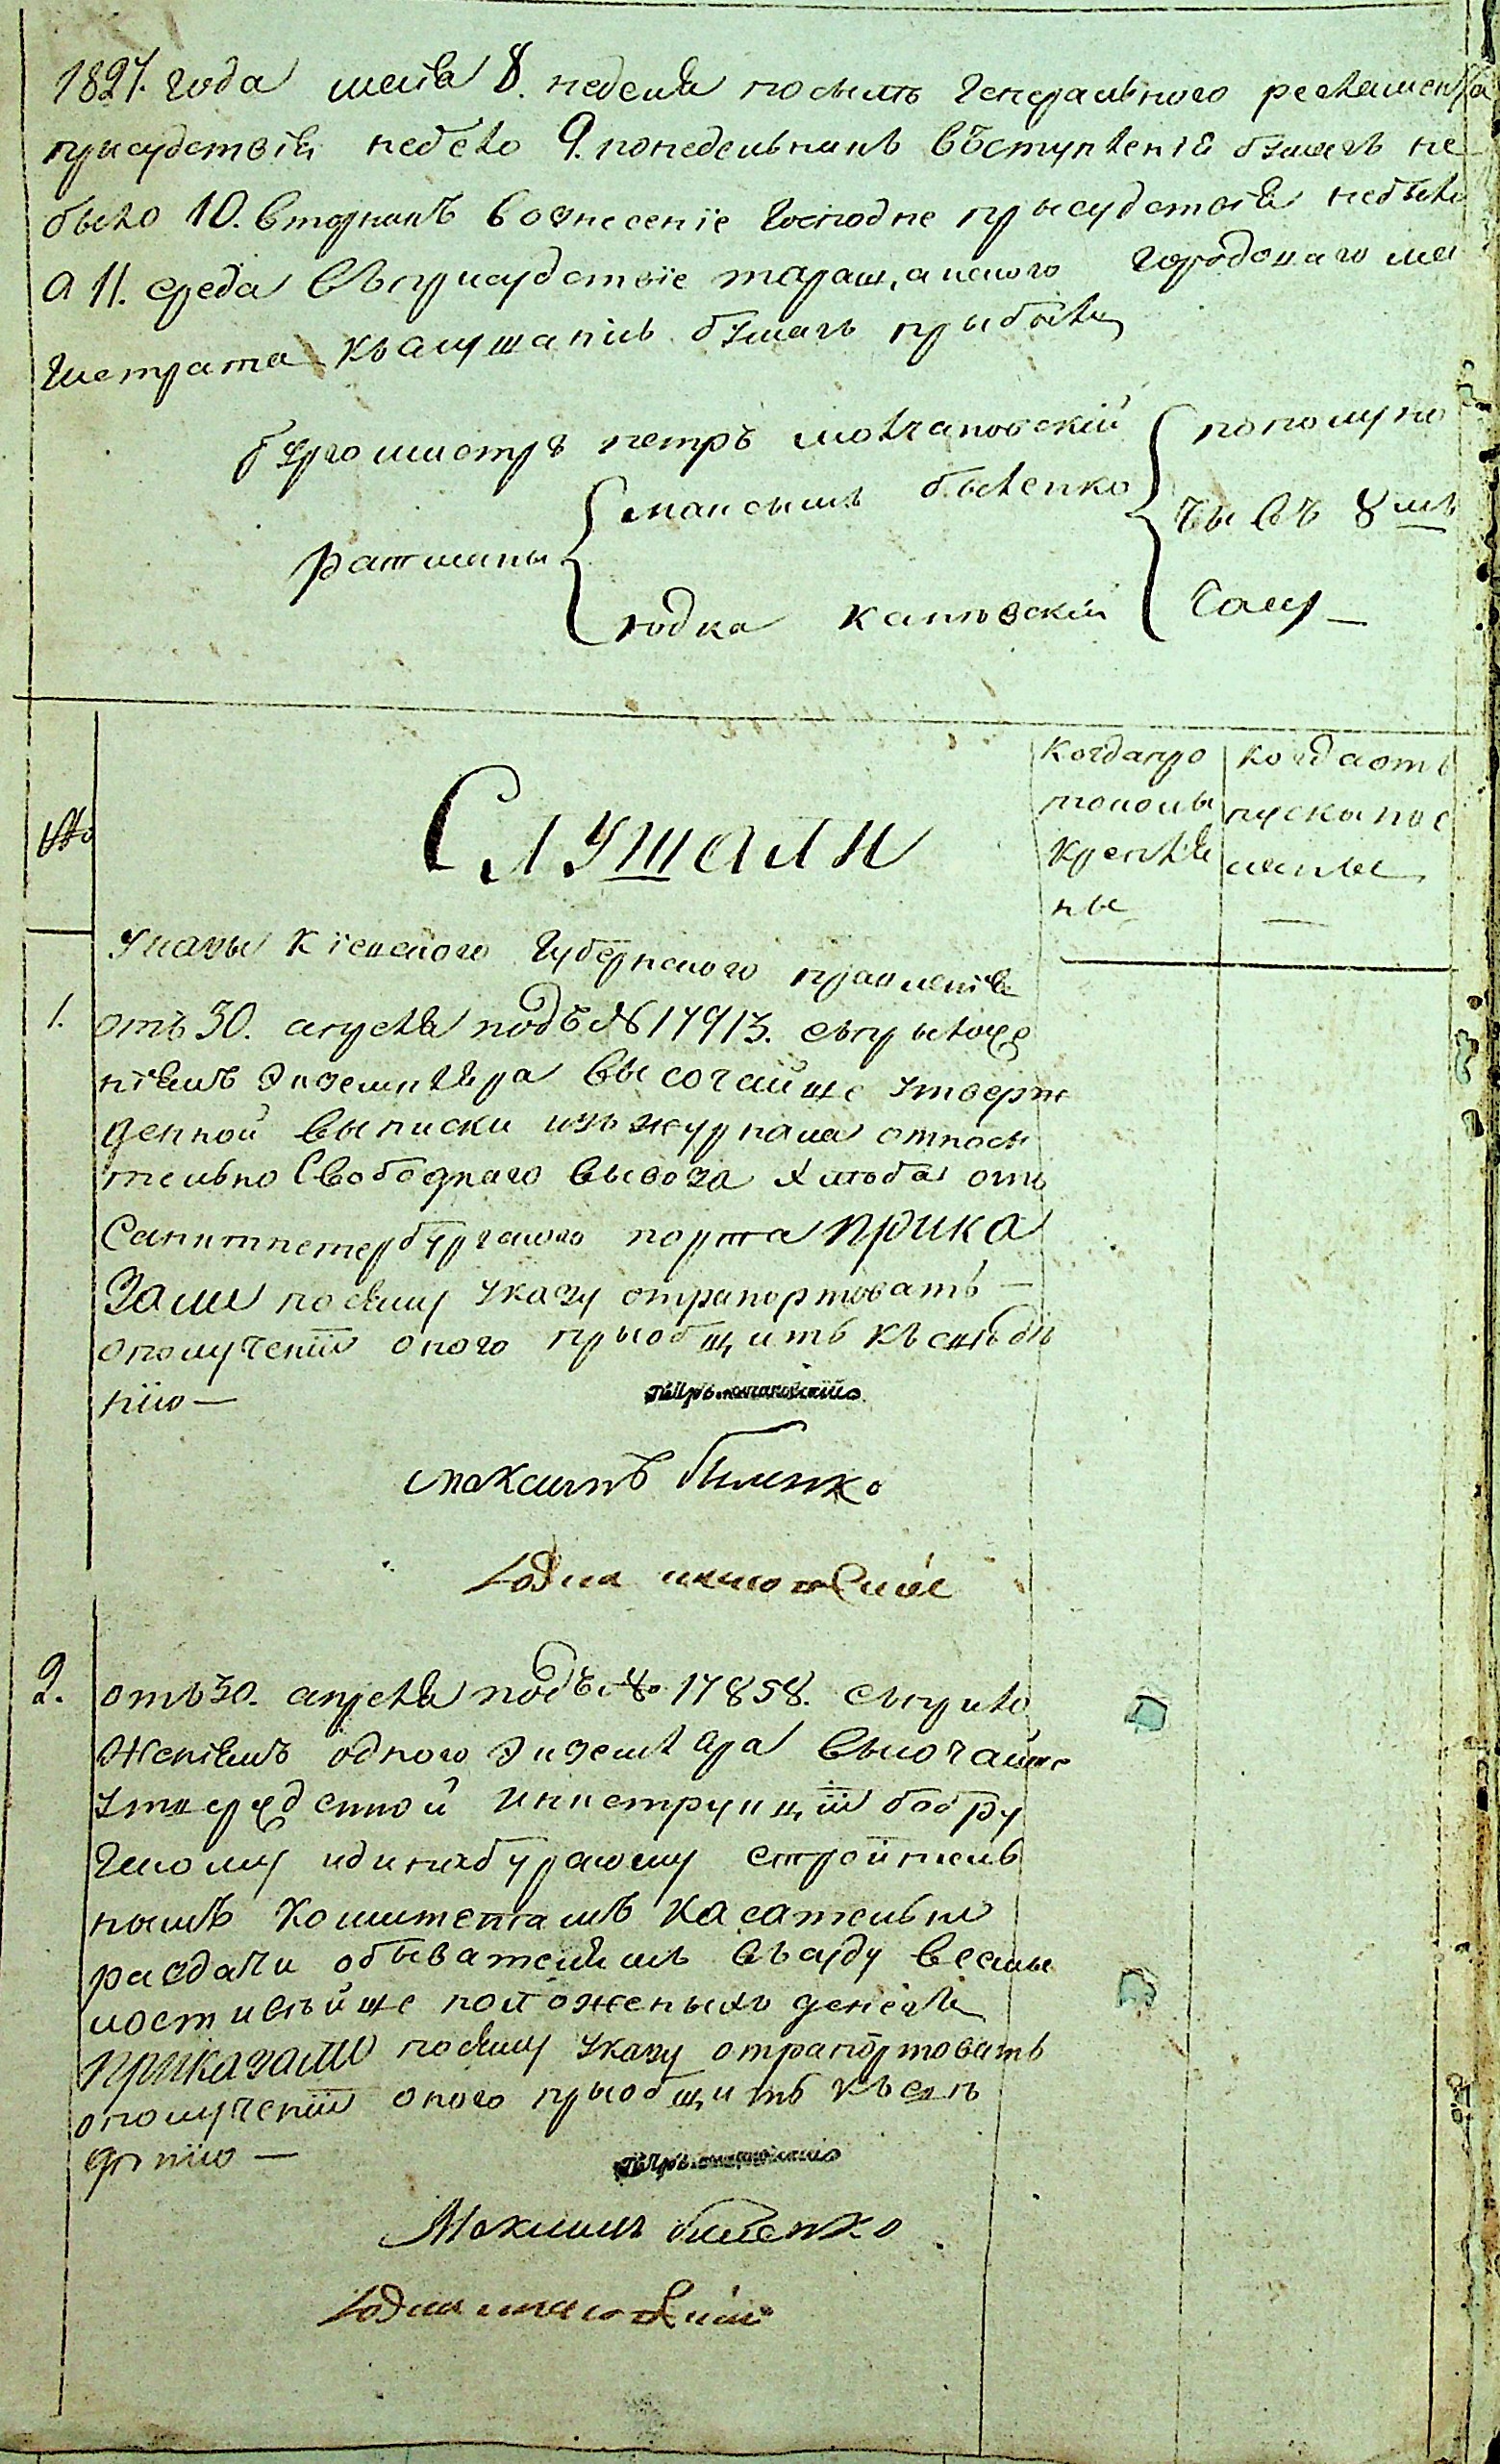 1827. года маія 8. неделя посилѣ генеральнаго регламента
присудствія небело 9. понедельникъ въступленій бумагъ не
было 10. вторникъ вознесеніе господне присудствія небыло
а 11. среда въприсудствіе таращанского городоваго ма
гистрата къслушанію бумагъ прыбыли
бургомистръ петръ молчановскій
ратманы
максымъ быленко
юдка каневскій
пополуно
чы въ 8мъ
часу —
№
Слушали
когдапро
токолы
крепля
ны
когдаотъ
пускыпос
ланы
—
указы кіевского губернского правленія
1. отъ 30. апреля подъ № 17913. съпрыложе
ніемъ экземпляра высочайше утверж
денной выписки изъ журнала относы
тельно свободнаго вывоза хлѣба отъ
Санктпетербургского порта Прика
зали посему указу отрапортовать —
ополученіи оного прыобщить къснабдѣ
нію —
максимъ биленко
2. отъ 30. апреля подъ № 17858. съприло
женіемъ одного экземпляра высочайше
утвержденной инструкціи бобруй
скому идинабурскому строитель
нымъ комитетамъ касательно
раздачи обывателямъ въсуду всемы
лостивѣйше положеныхъ денегъ
Приказали посему указу отрапортовать
ополученіи оного прыобщить късвѣ
дѣнію —
Максимъ биленко